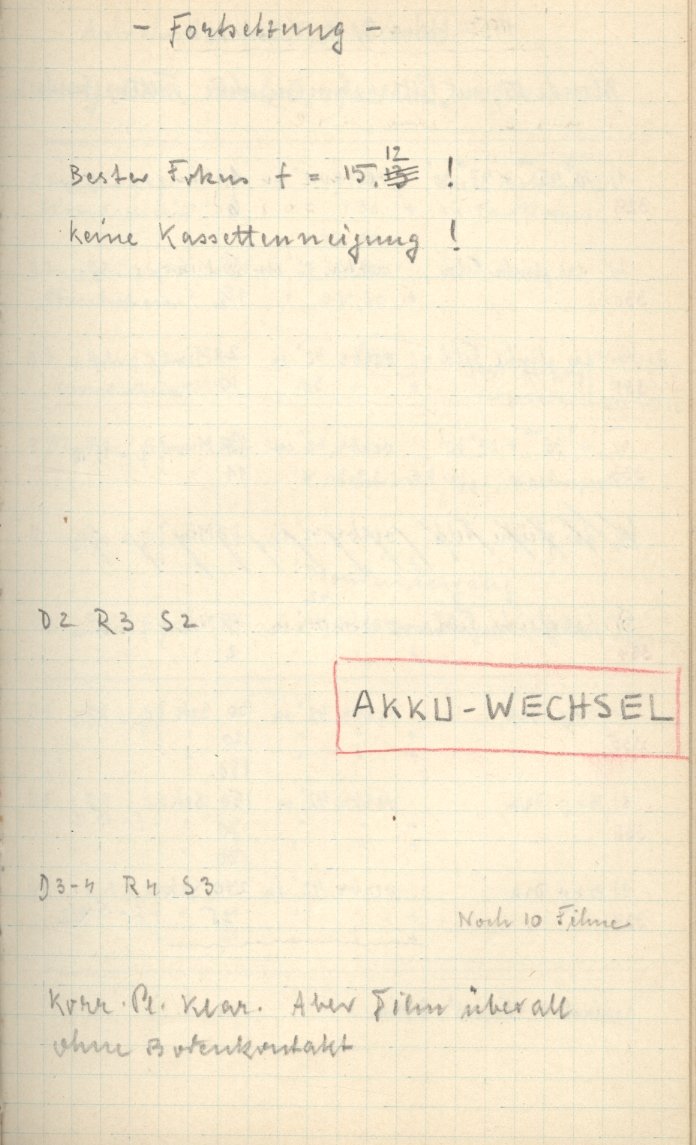 - Fortsetzung -
Bester Fokus f = 15.12 !
keine Kassettenneigung !
D2 R3 S2
AKKU-WECHSEL
D3-4 R4 S3
Noch 10 Filme
Korr. Pl. klar. Aber Film überall
ohne Bodenkontakt